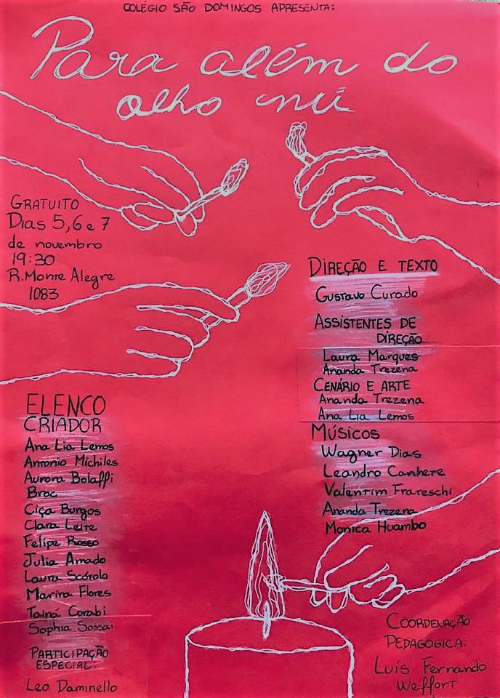 COLÉGIO SÃO DOMINGOS APRESENTA:
Para além do
olho nú
GRATUITO
Dias 5, 6 e 7
de novembro
19:30
R. Monte Alegre
1083
DIREÇÃO E TEXTO
Gustavo Curado
ASSISTENTES DE
DIREÇÃO
Laura Marques
Ananda Trezena
CENÁRIO E ARTE
Ananda Trezena
Ana Lia Lemos
MÚSICOS
Wagner Dias
Leandro Canhete
Valentim Frareschi
Ananda Trezena
Monica Huambo
ELENCO
CRIADOR
Ana Lia Lemos
Antonio Michiles
Aurora Bolaffi
Broc
Ciça Burgos
Clara Leite
Felipe Rosso
Julia Amado
Laura Scárola
Marina Flores
Tainá Corabi
Sophia Sassai
PARTICIPAÇÃO
ESPECIAL:
Leo Daminello
COORDENAÇÃO
PEDAGÓGICA:
Luis Fernando
Weffort